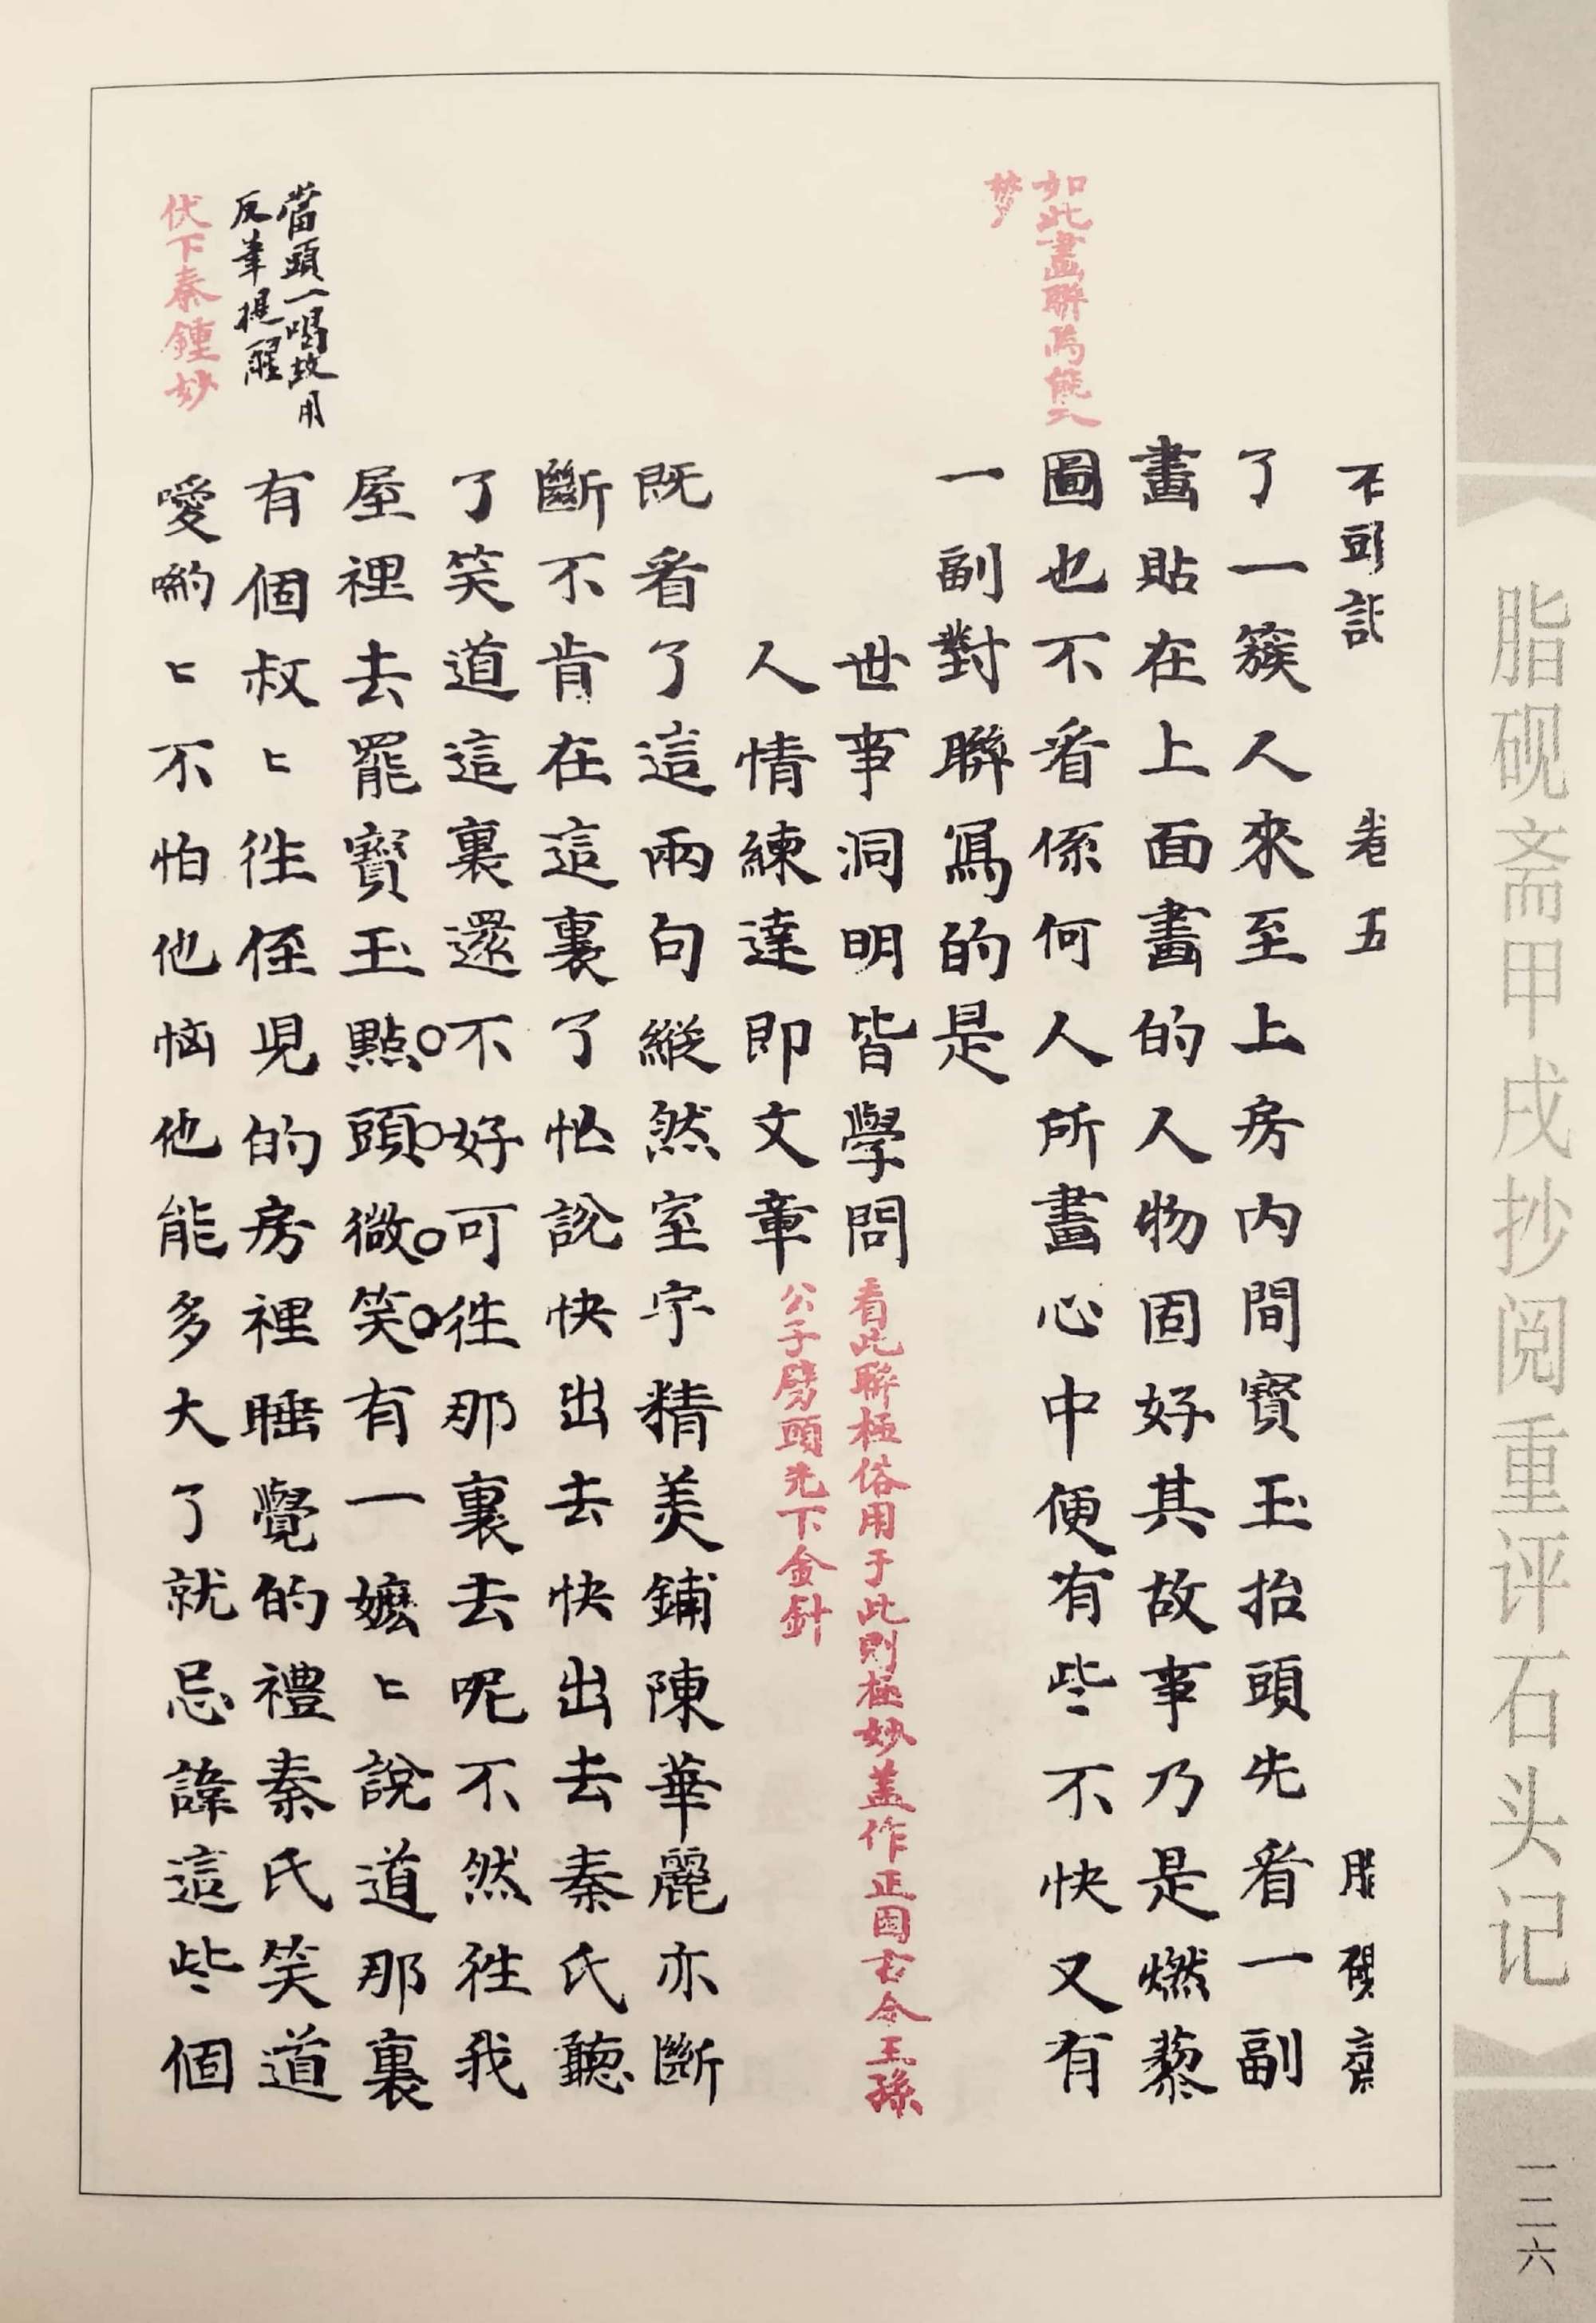 脂砚斋甲戌抄阅重评石头记
一二六
石頭記 卷五 脂硯齋
了一簇人來至上房內間寶玉抬頭先看一副
畫貼在上面畫的人物固好其故事乃是燃藜
圖也不看係何人所畫心中便有些不快又有
如此畫聯焉能入
梦
一副對聯寫的是
世事洞明皆學問
看此聯極俗用于此則極妙盖作正因古今王孫
人情練達即文章
公子劈頭先下金針
既看了這兩句縱然室宇精美鋪陳華麗亦斷
斷不肯在這裏了忙說快出去快出去秦氏聽
了笑道這裏還不好可徃那裏去呢不然徃我
屋裡去罷寶玉點頭微笑有一嬷〻說道那裏
當頭一喝故用
反筆提醒
有個叔〻徃侄兒的房裡睡覺的禮秦氏笑道
伏下秦鍾妙
噯喲〻不怕他惱他他能多大了就忌諱這些個